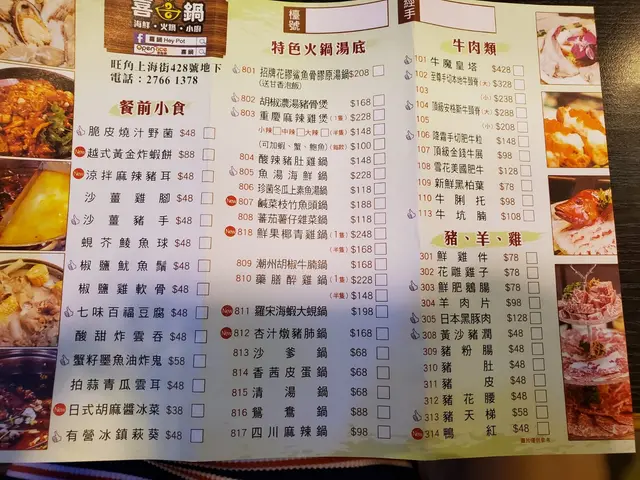 喜鍋
海鮮·火鍋·小廚
喜鍋 Hey Pot
Openrice
喜鍋
旺角上海街428號地下
電話：2766 1378
餐前小食
脆皮燒汁野菌 $48
New 越式黃金炸蝦餅 $88
New 涼拌麻辣豬耳 $48
沙薑雞腳 $48
沙薑豬手 $48
蜆芥鯪魚球 $48
椒鹽魷魚鬚 $48
椒鹽雞軟骨 $48
七味百福豆腐 $48
酸甜炸雲吞 $48
蟹籽墨魚油炸鬼 $58
拍蒜青瓜雲耳 $48
New 日式胡麻醬冰菜 $38
有營冰鎮萩葵 $48
檯號
經手
特色火鍋湯底
801 招牌花膠鯊魚骨膠原湯鍋 $208
(送甘香泡飯)
802 胡椒濃湯豬骨煲 $168
803 重慶麻辣雞煲 (1隻) $228
小辣 中辣 大辣 (半隻) $148
(可加蝦、蟹、鮑魚) (每款) $100
804 酸辣豬肚雞鍋 $148
805 魚湯海鮮鍋 $228
806 珍菌冬瓜上素魚湯鍋 $118
New 807 鹹菜枝竹魚頭鍋 $118
808 蕃茄薯仔雜菜鍋 $118
New 818 鮮果椰青雞鍋 (1隻) $248
(半隻) $168
809 潮州胡椒牛腩鍋 $168
810 藥膳醉雞鍋 (1隻) $228
(半隻) $148
New 811 羅宋海蝦大蜆鍋 $198
New 812 杏汁燉豬肺鍋 $168
813 沙爹鍋 $68
814 香茜皮蛋鍋 $68
815 清湯鍋 $68
816 鴛鴦鍋 $88
817 四川麻辣鍋 $98
牛肉類
101 牛魔皇塔 $428
102 至尊手切本地牛頸脊 (大) $328
103 (小) $238
104 頂級安格斯牛頸脊 (大) $288
105 (小) $208
106 降霜手切肥牛粒 $168
107 頂級金錢牛展 $98
108 雪花美國肥牛 $128
109 新鮮黑柏葉 $78
110 牛脷托 $98
113 牛坑腩 $108
豬、羊、雞
301 鮮雞件 $78
302 花雕雞子 $78
303 鮮肥鵝腸 $78
304 羊肉片 $98
305 日本黑豚肉 $128
308 黃沙豬潤 $48
309 豬粉腸 $48
310 豬肚 $48
311 豬皮 $48
312 豬花腰 $48
313 豬天梯 $58
New 314 鴨紅 $48